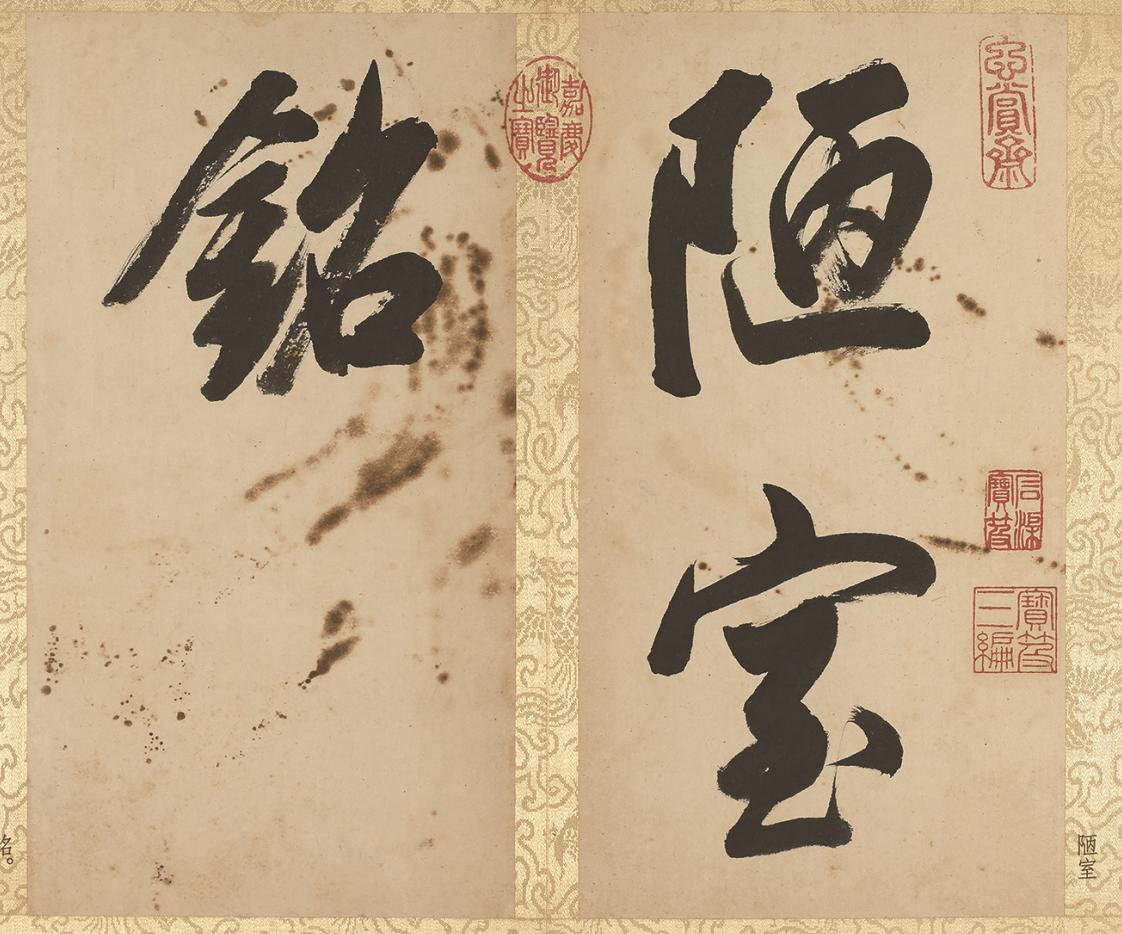 陋室
銘
賞齋
石渠
寶笈
寶笈
三編
嘉慶
御覽
之寶
陋室
銘。